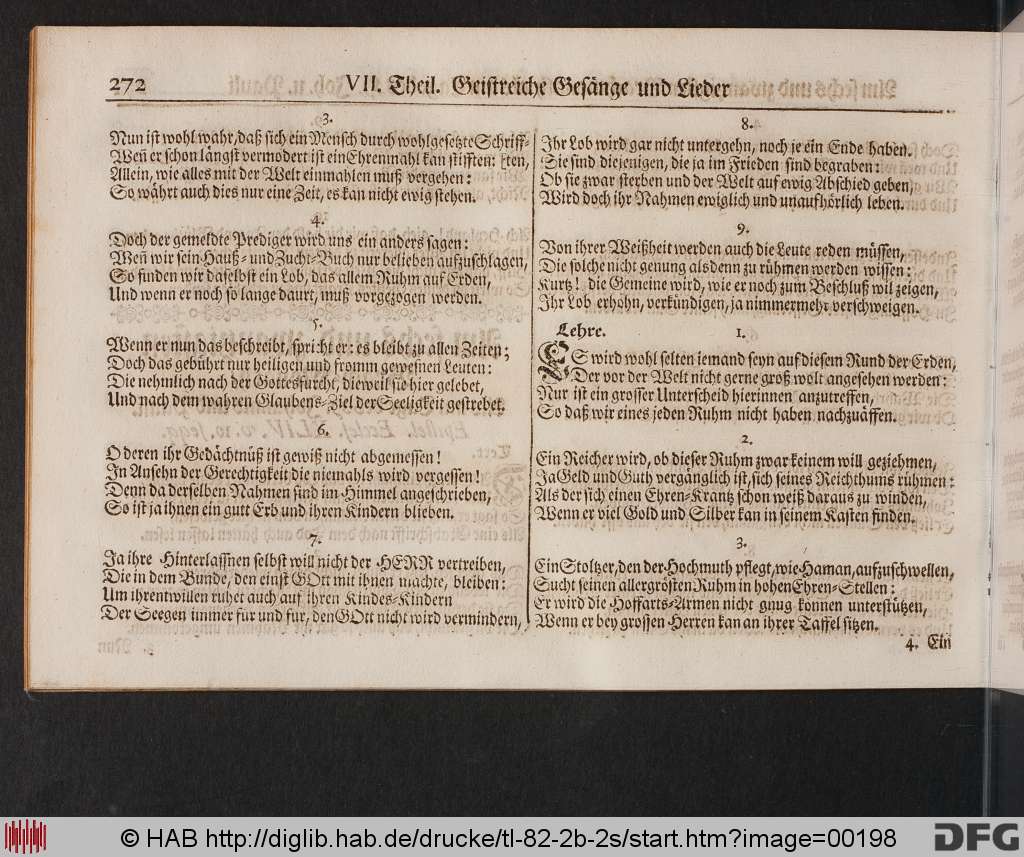 272 VII. Theil. Geistreiche Gesänge und Lieder
3.
Nun ist wohl wahr, daß sich ein Mensch durch wohlgesetzte Schriff-
Wen̄ er schon längst vermodert ist ein Ehrenmahl kan stifften: [ten,
Allein, wie alles mit der Welt einmahlen muß vergehen:
So währt auch dies nur eine Zeit, es kan nicht ewig stehen.
4.
Doch der gemeldte Prediger wird uns ein anders sagen:
Wen̄ wir sein Hauß- und Zucht-Buch nur belieben aufzuschlagen,
So finden wir daselbst ein Lob, das allem Ruhm auf Erden,
Und wenn er noch so lange daurt, muß vorgezogen werden.
5.
Wenn er nun das beschreibt, spricht er: es bleibt zu allen Zeiten;
Doch das gebührt nur heiligen und fromm gewesnen Leuten:
Die nehmlich nach der Gottesfurcht, dieweil sie hier gelebet,
Und nach dem wahren Glaubens-Ziel der Seeligkeit gestrebet.
6.
O deren ihr Gedächtnüß ist gewiß nicht abgemessen!
In Ansehn der Gerechtigkeit die niemahls wird vergessen!
Denn da derselben Nahmen sind im Himmel angeschrieben,
So ist ja ihnen ein gutt Erb und ihren Kindern blieben.
7.
Ja ihre Hinterlaßnen selbst will nicht der HERR vertreiben,
Die in dem Bunde, den einst GOtt mit ihnen machte, bleiben:
Um ihrentwillen ruhet auch auf ihren Kindes-Kindern
Der Seegen immer für und für, den GOtt nicht wird vermindern,
8.
Ihr Lob wird gar nicht untergehn, noch je ein Ende haben.
Sie sind diejenigen, die ja im Frieden sind begraben:
Ob sie zwar sterben und der Welt auf ewig Abschied geben,
Wird doch ihr Nahmen ewiglich und unaufhörlich leben.
9.
Von ihrer Weißheit werden auch die Leute reden müssen,
Die solche nicht genung alsdenn zu rühmen werden wissen:
Kurtz! die Gemeine wird, wie er noch zum Beschluß wil zeigen,
Ihr Lob erhöhn, verkündigen, ja nimmermehr verschweigen.
Lehre. 1.
ES wird wohl selten iemand seyn auf diesem Rund der Erden,
Der vor der Welt nicht gerne groß wolt angesehen werden:
Nur ist ein grosser Unterscheid hierinnen anzutreffen,
So daß wir eines jeden Ruhm nicht haben nachzuäffen.
2.
Ein Reicher wird, ob dieser Ruhm zwar keinem will geziehmen,
Ja Geld und Guth vergänglich ist, sich seines Reichthums rühmen:
Als der sich einen Ehren-Krantz schon weiß daraus zu winden,
Wenn er viel Gold und Silber kan in seinem Kasten finden.
3.
Ein Stoltzer, den der Hochmuth pflegt, wie Haman, aufzuschwellen,
Sucht seinen allergrösten Ruhm in hohen Ehren-Stellen:
Er wird die Hoffarts-Armen nicht gnug können unterstützen,
Wenn er bey grossen Herren kan an ihrer Taffel sitzen.
4. Ein
© HAB http://diglib.hab.de/drucke/tl-82-2b-2s/start.htm?image=00198
DFG